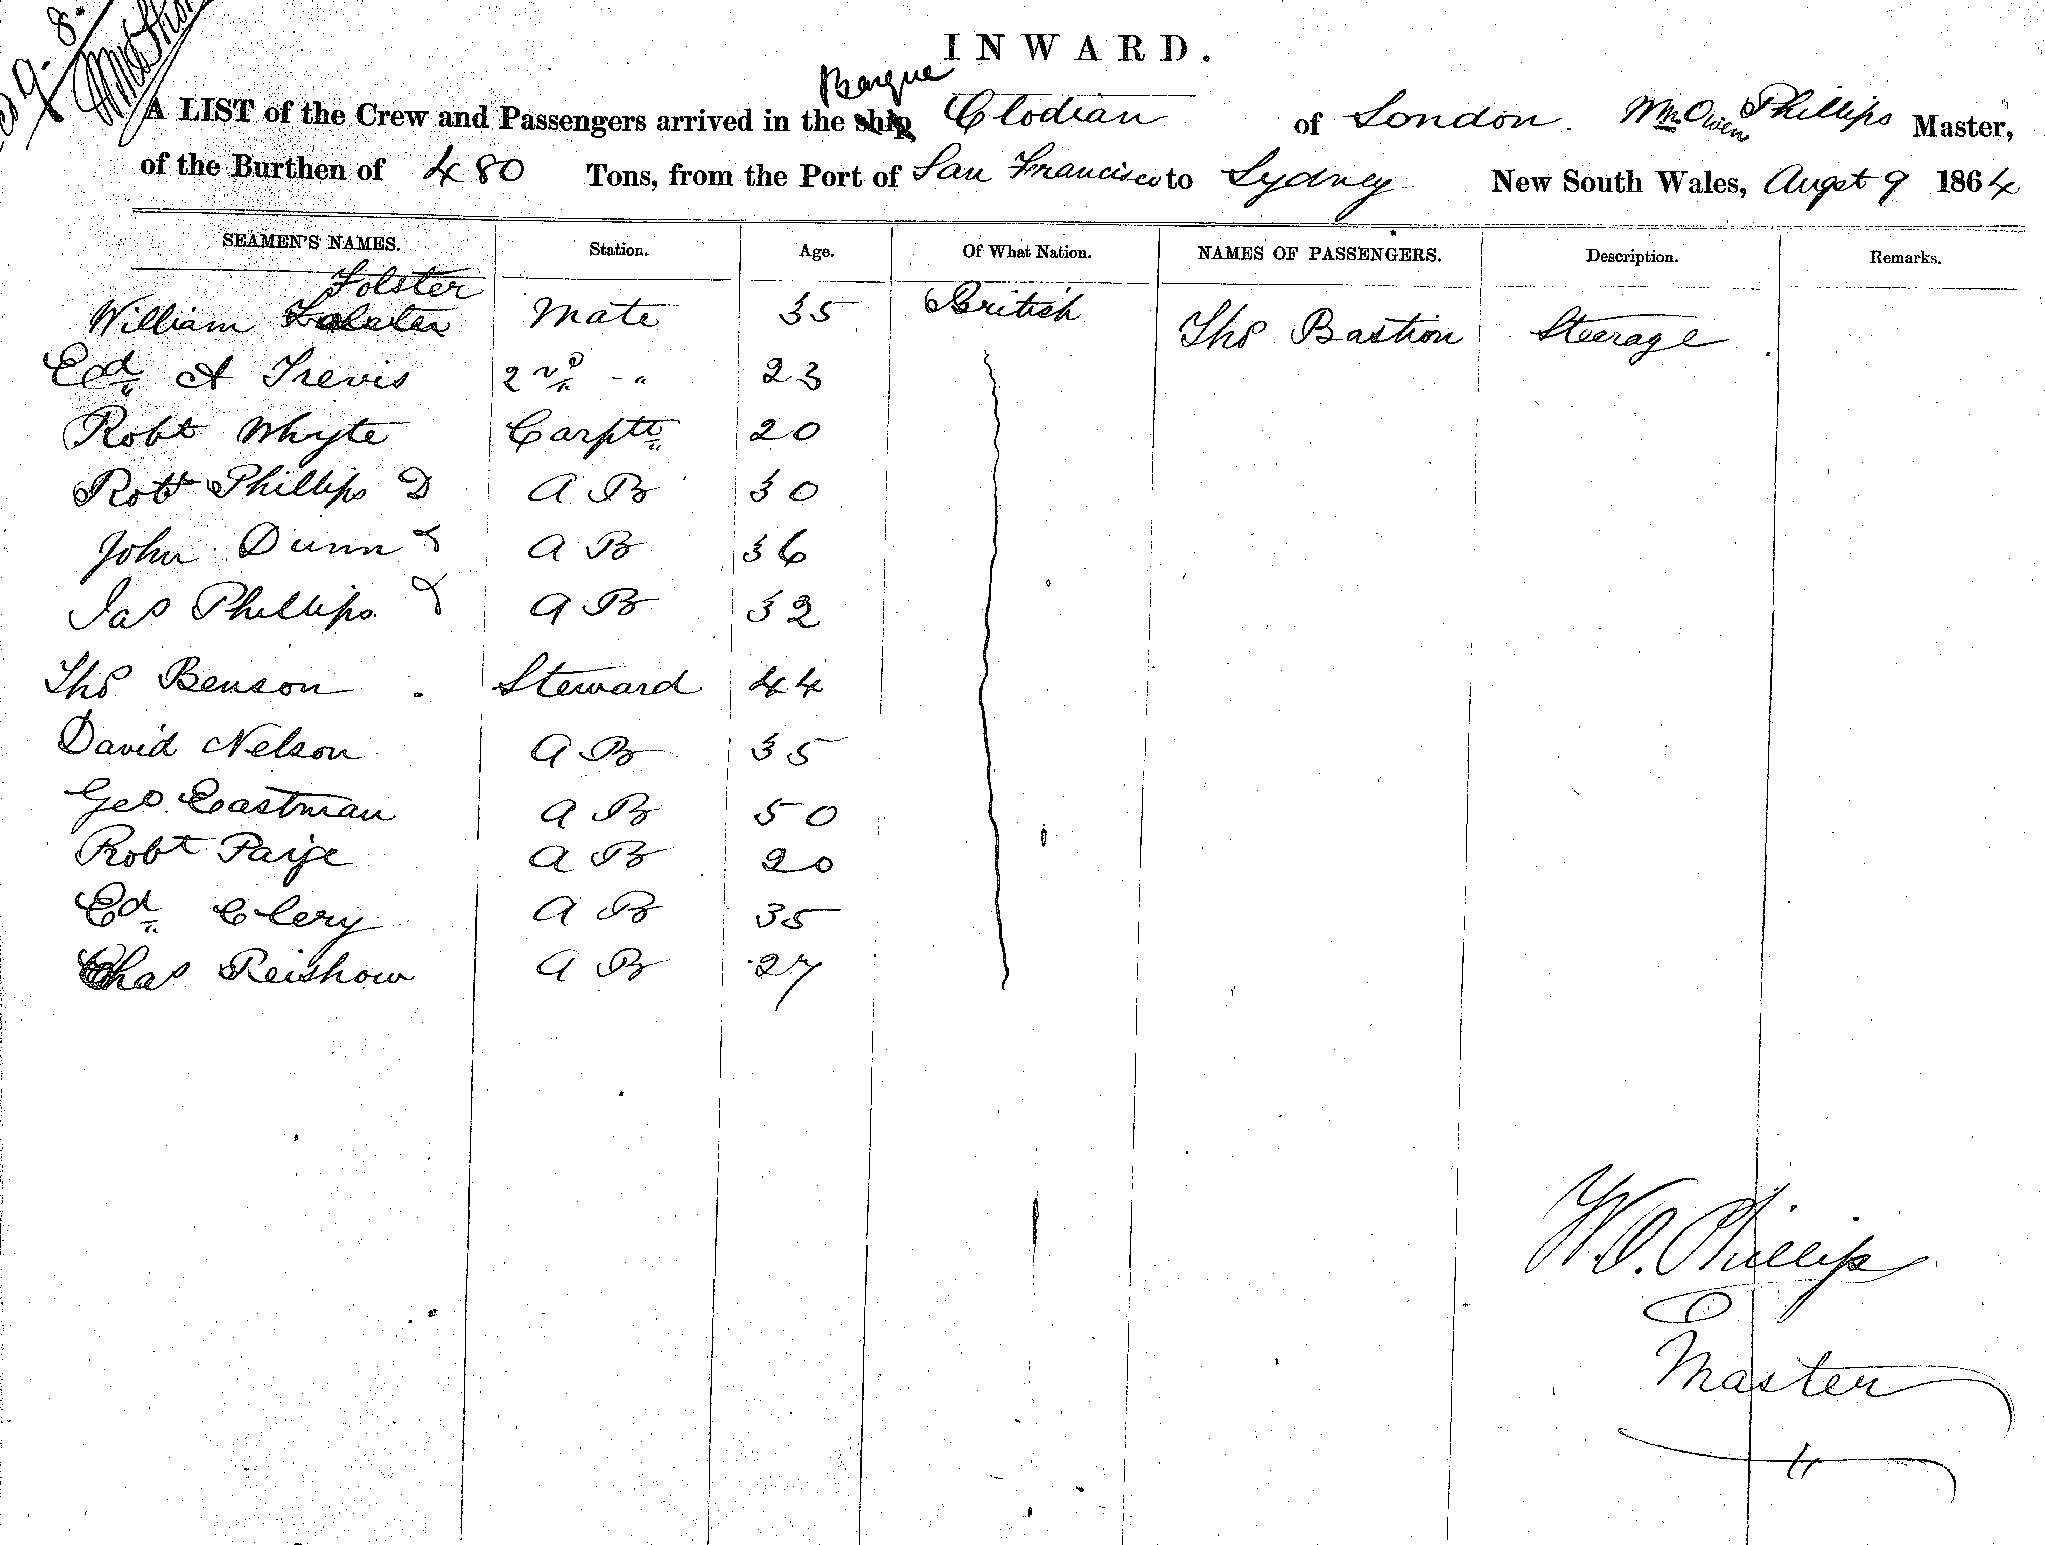 9. 8.
INWARD.
Barque
A LIST of the Crew and Passengers arrived in the ship Clodian of London. Wm Owen Phillips Master,
of the Burthen of 480 Tons, from the Port of San Francisco to Sydney New South Wales, Augst 9 1864
SEAMEN'S NAMES. Station. Age. Of What Nation. NAMES OF PASSENGERS. Description. Remarks.
Folster
William Mate 35 British Thos Bastion Steerage
Ed A Trevis 2nd " 23
Robt Whyte Carptr 20
Robt Phillips D A B 30
John Dunn A B 36
Jas Phillips A B 32
Thos Benson Steward 44
David Nelson A B 35
Geo Eastman A B 50
Robt Paige A B 20
Ed Clery A B 35
Chas Reishow A B 27
W. O. Phillips
Master